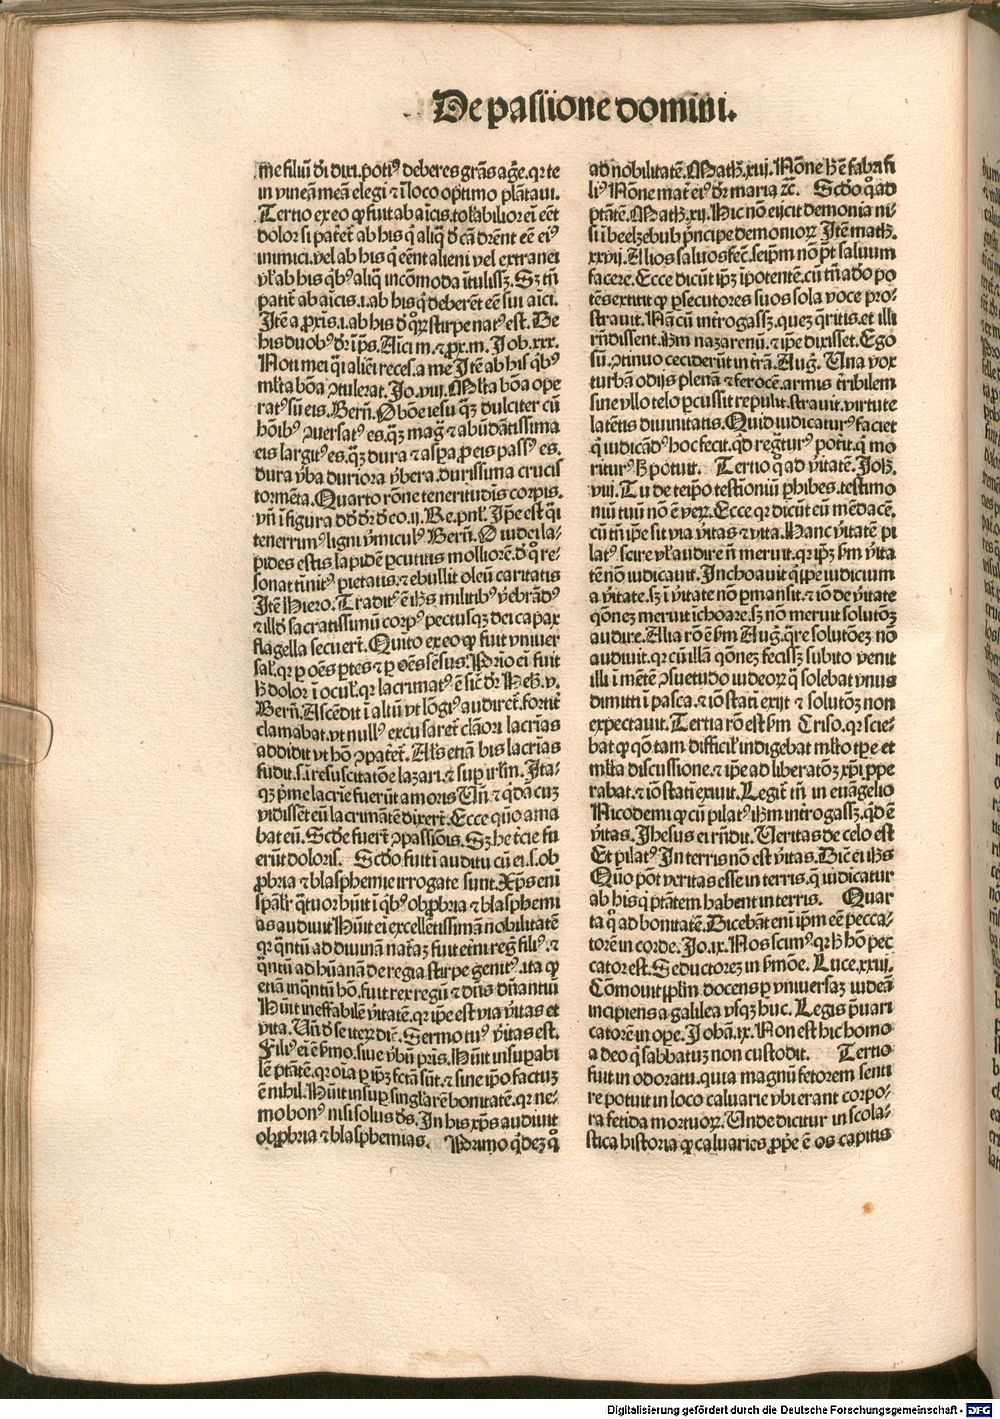 De passione domini.
me filiū dī dixi. potiꝰ deberes gr̄as aḡe. qr te
in vineā meā elegi ⁊ ī loco optimo plātaui.
Tertio ex eo ꝙ fuit ab aīcis. tol̄abilior ei eēt
dolor si pat̄et ab his q̄ aliq̄ d̄ cā dr̄ent eē eiꝰ
inimici. vel ab his q̄ eēnt alieni vel extranei
vl̓ ab his qͥbꝰ aliq̄ incōmoda ītulissꝫ. Sꝫ tn̄
patit̄ ab aīcis .i. ab his q̄ deberēt eē sui aīci.
Itē a ꝓxīs .i. ab his d̄ quoꝝ stirpe natꝰ est. De
his duobꝰ dr̄ ī ps̄. Aīci m. ⁊ ꝓx. m. Job .xxx.
Noti mei q̄i alieni recesß. a me Itē ab his qͥbꝰ
ml̓ta bōa ꝯtulerat. Jo. viij. Ml̓ta bōa ope
ratꝰ sū eis. Bern̄. O bōe iesu qͣꝫ dulciter cū
hōībꝰ ꝯuersatꝰ es. qͣꝫ magͣ ⁊ abūdātissima
eis largitꝰ es. qͣꝫ dura ⁊ aspa ꝓ eis passꝰ es.
dura v̓ba duriora v̓bera. durissima crucis
tormēta. Quarto rōne teneritudīs corpīs.
vn̄ ī figura dd̄ dr̄ .ij. Re. pnl̓. Ip̄e est q̄i
tenerrimꝰ ligni v̓miculꝰ Bern̄. O iudei la-
pides estis lapidē ꝑcutitis molliorē. d̄ qͦ re-
sonat tīnitꝰ pietatis. ⁊ ebullit oleū caritatis
Itē Hiero. Traditꝰ ē ih̄s militibꝰ v̓bēradꝰ
⁊ illd̄ sacratissimū corpꝰ pectusqꝫ dei capax
flagella secuer̄t. Quīto ex eo ꝙ fuit vniuer
sal̓. qr ꝑ oēs ꝑtes ⁊ ꝑ oēs sēsus. Prīo ei fuit
hͦ dolor ī ocul̓. qr lacrimatꝰ ē sic̄ dr̄ Heb̓. v.
Bern̄. Ascēdit ī altū vt lōgiꝰ audiret̄. fortiꝰ
clamabat. vt nullꝰ excusaret̄ clāori lacrīas
addidit vt hō ꝯpatet̄. Al̓s etiā bis lacrīas
fudit. s. ī resuscitatōe lazari. ⁊ sup irl̄m. Ita-
qꝫ pͥme lacrīe fuerūt amoris Vn̄ ⁊ qͥdā cuꝫ
vidissēt eū lacrimātē dixer̄t. Ecce quō ama
bat eū. Scd̄e fuer̄t ꝯpassiōis. Sꝫ he t̓cie fu
erūt doloris. Scd̄o fuit ī auditu cū ei .s. ob
ꝓbria ⁊ blasphemie irrogate sunt. Xp̄s enī
spāl̓r qͣtuor hūit ī qͥbꝰ obꝓbria ⁊ blasphemi
as audiuit Hūit ei excellētissimā nobilitatē
qr qͣntū ad diuinā naͭaꝫ fuit et̓ni reg̓ filiꝰ. ⁊
qͣntū ad hūanā de regia stirpe genitꝰ. ita ꝙ
etiā inqͣntū hō. fuit rex regū ⁊ dn̄s dn̄antiū
Hūit ineffabilē v̓itatē. qr ip̄e est via v̓itas et
vita. Vn̄ d̄ se iteꝝ dic̄. Sermo tuꝰ v̓itas est.
Filiꝰ ei ē sͬmo. siue v̓bū pr̄is. Hūit insupabi
lē ptātē. qr oīa ꝑ ip̄ꝫ fctā sūt. ⁊ sine ip̄o factuꝫ
ē nihil. Hūit insup singl̓arē bonitatē. qr ne-
mo bonꝰ nisi solus dͤs. In his xp̄s audiuit
obꝓbria ⁊ blasphemias. Primo qͥdeꝫ qͦ
ad nobilitatē. Math̓. xiij. Nōne hͥ ē fabri fi
liꝰ Nōne mat̓ eiꝰ dr̄ maria ⁊c̄. Scd̄o qͦ ad
ptātē. Math̓. xij. Hic nō eijcit demonia ni-
si ī beelzebub pͥncipe demonioꝝ Itē math̓.
xxvij. Alios saluos fec̄. seip̄m nō pōt saluum
facere. Ecce dicūt ip̄ꝫ īpotentē. cū tn̄ adō po
tēs extitit ꝙ ꝑsecutores suos sola voce pro-
strauit. Nā cū int̓rogassꝫ. queꝫ q̄ritis. et illi
rn̄dissent. Ih̄m nazarenū. ⁊ ip̄e dixisset. Ego
sū. ꝯtinuo ceciderūt in t̓rā. Aug̓. Una vox
turbā odijs plenā ⁊ ferocē. armis t̓ribilem
sine vllo telo ꝑcussit repulit. strauit. virtute
latētis diuinitatis. Quid iudicaturꝰ faciet
q̄ iudicādꝰ hoc fecit. qͥd regnͣturꝰ pot̓it. q̄ mo
riturꝰ hͦ potuit. Tertio qͦ ad v̓itatē. Joh̓.
viij. Tu de teip̄o testīoniū phibes. testimo
niū tuū nō ē veꝝ. Ecce qr dicūt eū mēdacē.
cū tn̄ ip̄e sit via v̓itas ⁊ vita. Hanc v̓itatē pi
latꝰ scire vl̓ audire nō meruit. qr ip̄ꝫ sm̄ v̓ita
tē nō iudicauit. Inchoauit q̄ ip̄e iudicium
a v̓itate. sꝫ ī v̓itate nō ꝑmansit. ⁊ iō de v̓itate
qōneꝫ meruit īchoare. sꝫ nō meruit solutōꝫ
audire. Alia rō ē sm̄ Aug̓. qͣre solutōeꝫ nō
audiuit. qr cū illā qōneꝫ fecissꝫ subito venit
illi ī mētē ꝯsuetudo iudeoꝝ qͣ solebat vnus
dimitti ī pasca. ⁊ iō stati exijt ⁊ solutōꝫ non
expectauit. Tertia rō est sm̄ Criso. qr scie-
bat ꝙ qō tam difficil̓ indigebat ml̓to tp̄e et
ml̓ta discussione. ⁊ ip̄e ad liberatōꝫ xp̄i ꝓpe
rabat. ⁊ iō stati exiuit. Legit̓ tn̄ in euāgelio
Nicodemi ꝙ cū pilatꝰ ih̄m int̓rogassꝫ. qͥd ē
v̓itas. Jhesus ei rn̄dit. Veritas de celo est
Et pilatꝰ In terris nō est v̓itas. Dic̄ ei ih̄s
Quō pōt veritas esse in terris. q̄ iudicatur
ab his q̄ ptātem habent in terris. Quar
ta qͦ ad bonitatē. Dicebāt eni ip̄m eē pecca-
torē in corde. Jo. ix. Nos scimꝰ qr hͥ hō pec
cator est. Seductoreꝫ in sͬmōe. Luce. xxiij.
Cōmouit pl̄m docens ꝑ vniuersaꝫ iudeā
incipiens a galilea vsqꝫ huc. Legis p̄uari
catorē in oꝑe. Johā. ix. Non est hic homo
a deo q̄ sabbatuꝫ non custodit. Tertio
fuit in odoratu. quia magnū fetorem senti
re potuit in loco caluarie vbi erant corpo-
ra fetida mortuoꝝ. Unde dicitur in scola-
stica historia ꝙ caluaries ꝓpe ē os capitis
Digitalisierung gefördert durch die Deutsche Forschungsgemeinschaft - DFG